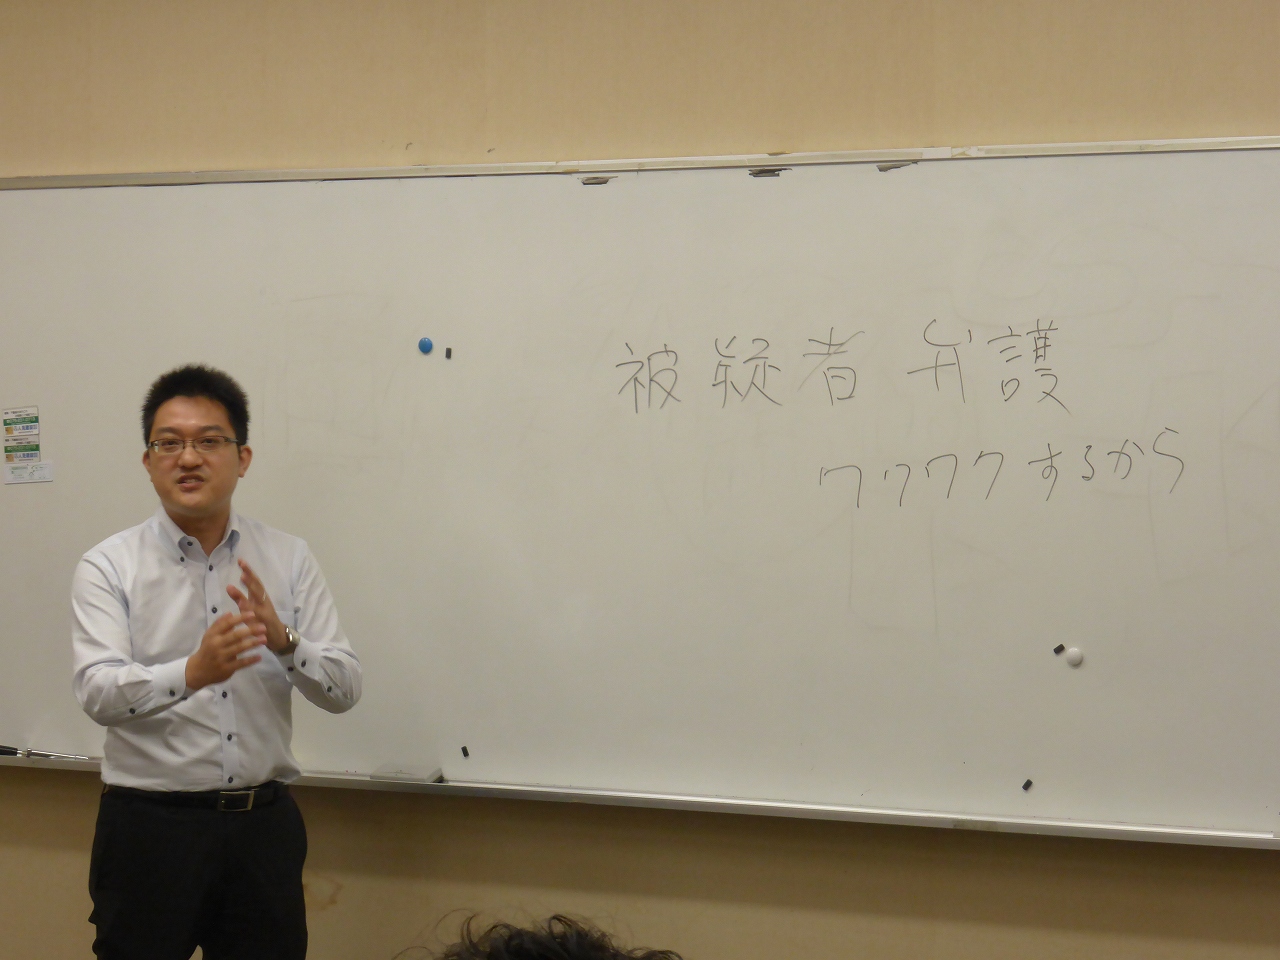 被疑者 弁護
ワクワクするから